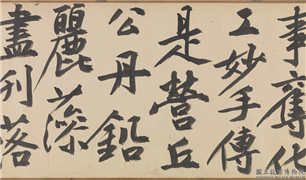 事奪化
工妙手傳
是營丘
公丹鉛
麗藻
盡刋落
國立故宮博物院
NATIONAL PALACE MUSEUM